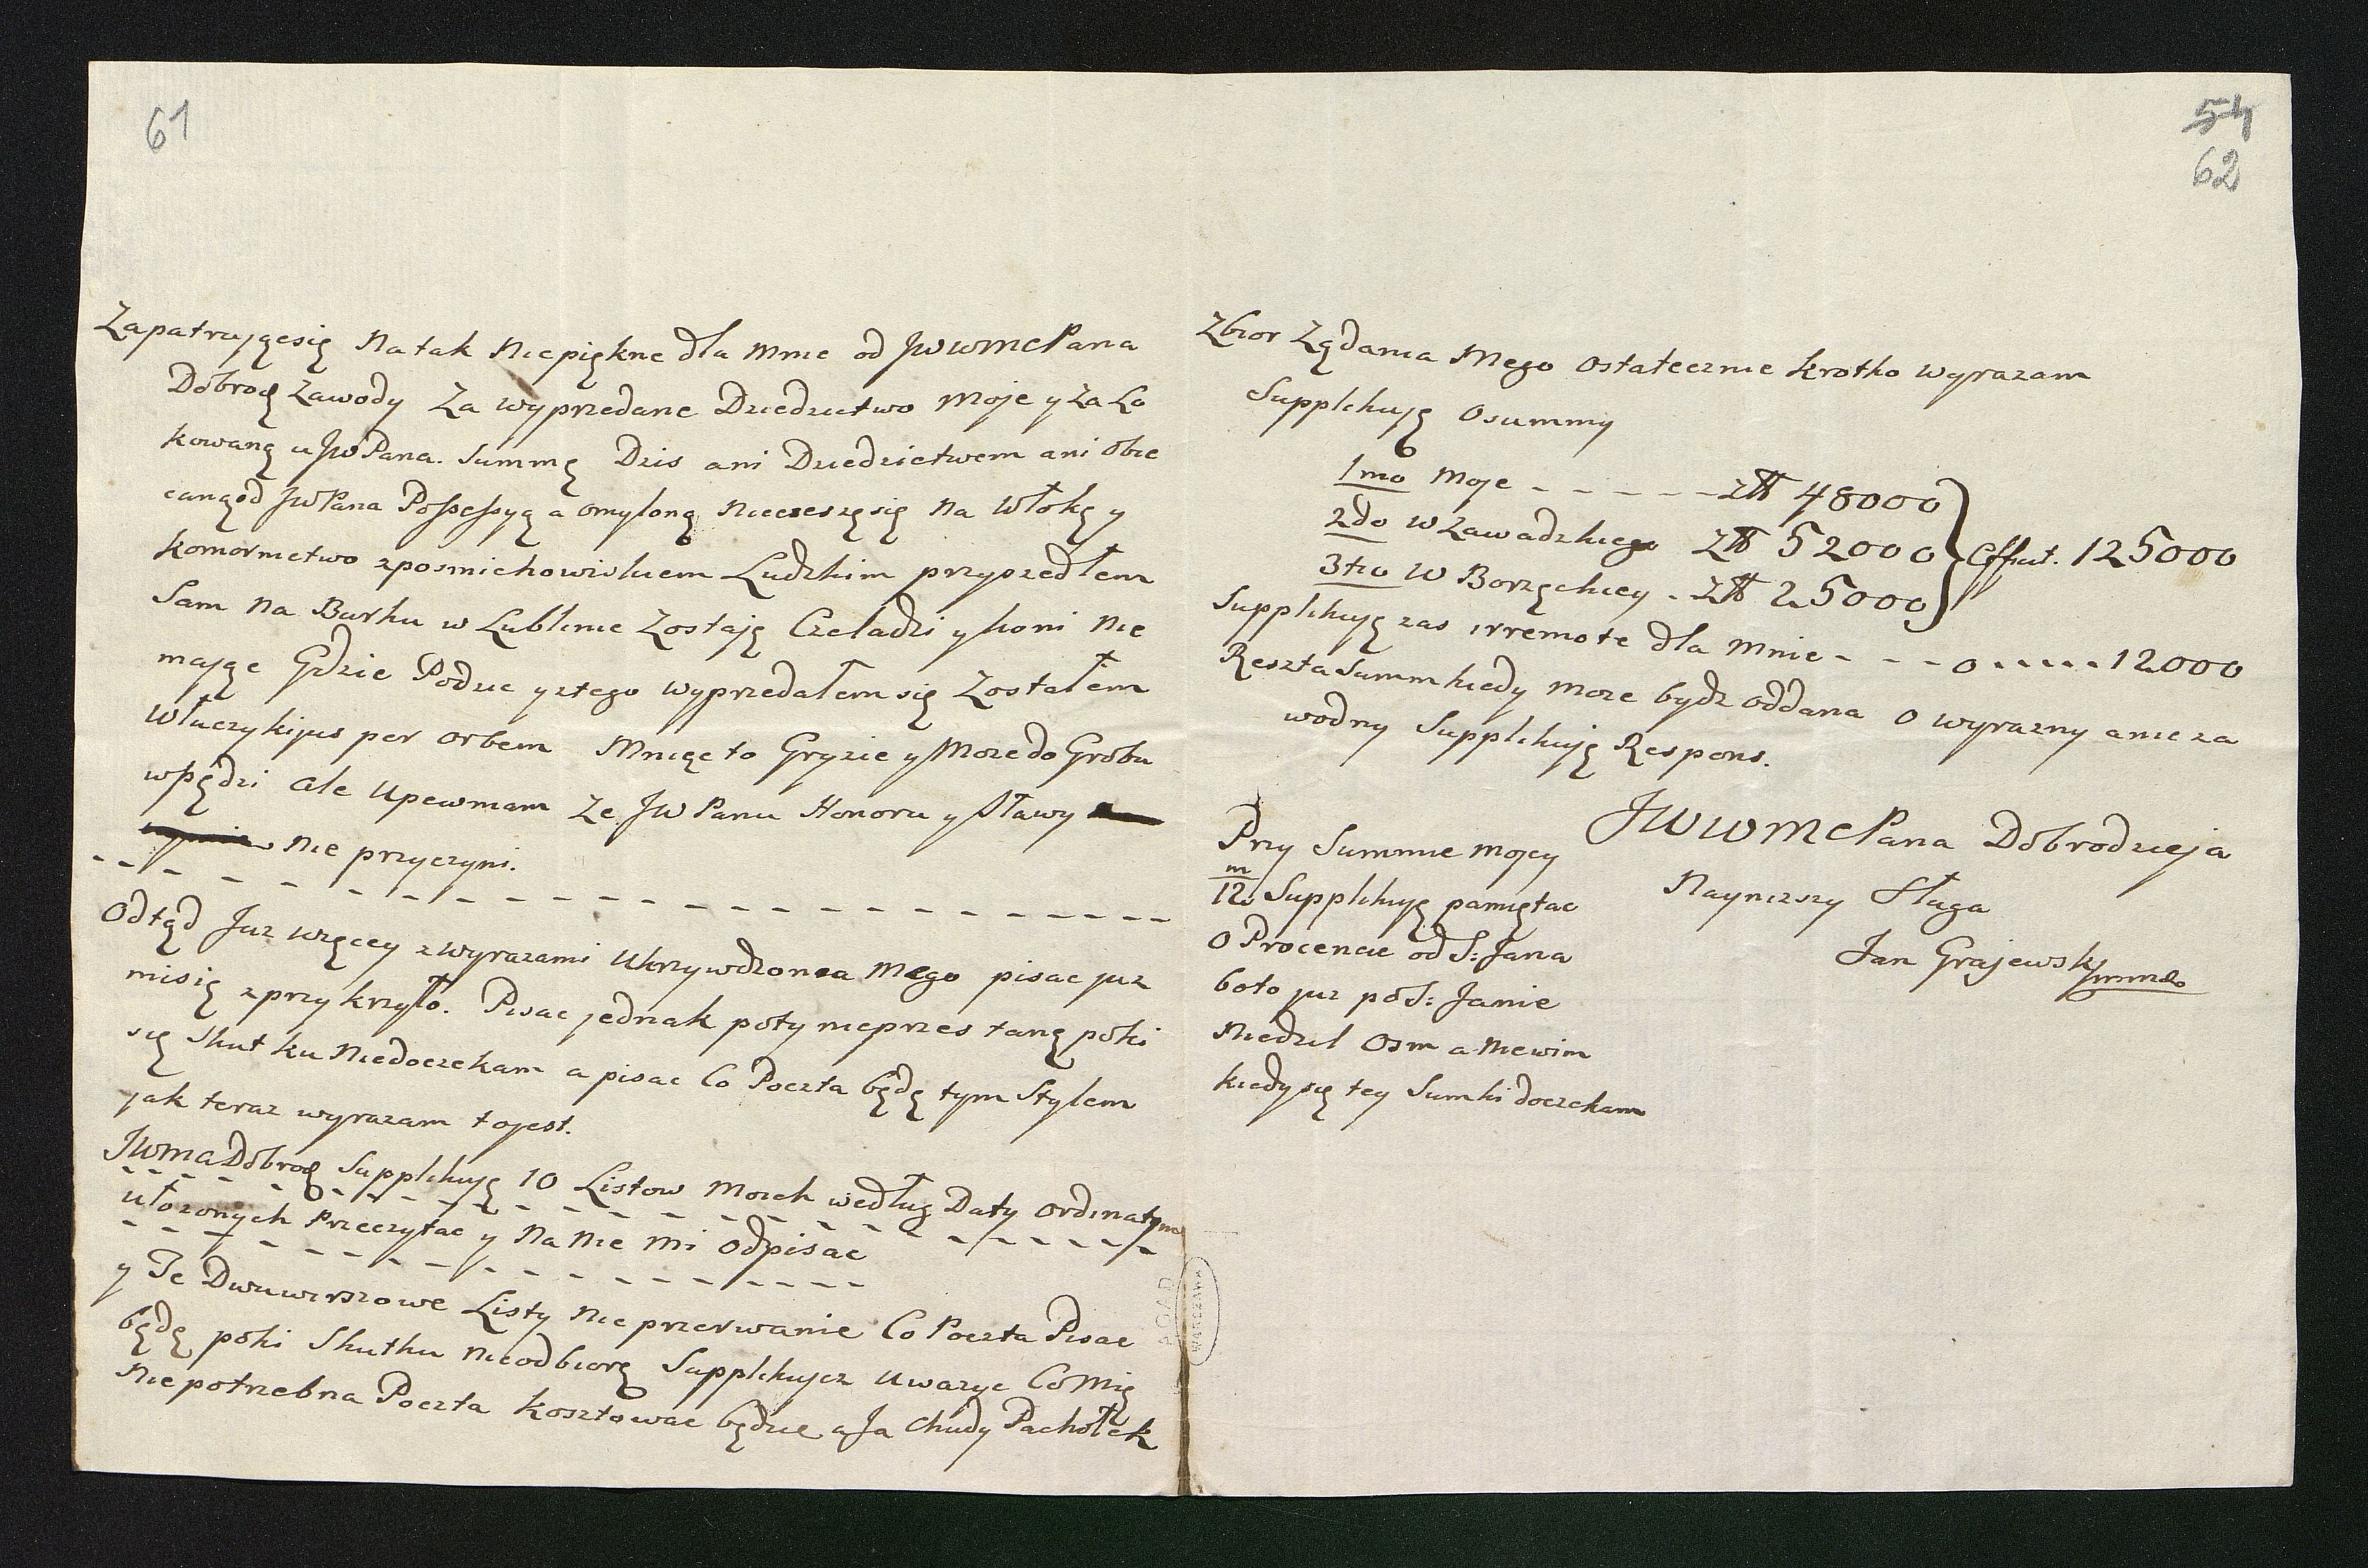 61
Zapatrującsię Na tak Niepiękne dla Mnie od JWWMCPana
Dobrod Zawody Za wyprzedane Dziedzictwo Moje y Za Lo
kowaną u JWPana. Summę Dzis ani Dziedzictwem ani obie
caną od JWPana Possessyą a omyloną Niecieszęsię Na Włokę y
komornictwo zposmichowiskiem Ludzkim przyszedłem
Sam Na Burku w Lublinie Zostaję Czeladzi y koni Nie
mając Gdzie Podzic yztego wyprzedałem się Zostałem
Włuczykijus per orbem Mnięto Gryzie y Moze do Grobu
wpędzi ale Upewniam Ze JW Panu Honoru y Sławy
Nie przyczyni.
Odtąd Juz więcey zwyrazami Ukrzywdzonia Mego pisac juz
misię zprzykrzyło. Pisac jednak poty nieprzestanę poki
się Skutku Niedoczekam a pisac Co Poczta będę tym Stylem
jak teraz wyrazam tojest.
JWMCaDobrod Supplikuję 10 Listow Moich według Daty Ordinatym
ułozonych Przeczytac y Na Nie Mi Odpisac
y Te Dwuwirszowe Listy Nieprzerwanie Co Poczta Pisac
będę poki Skutku Nieodbiorę Supplikujęz Uwazyc Co Mię
Niepotrzebna Poczta kosztowac będzie a Ja Chudy Pachołek
54
62
Zbior Ządania Mego Ostatecznie krotko wyrazam
Supplikuję O summy
1mo Moje - - - - - - zł 48000
2do WZawadzkiego zł 52000 Efficit. 125000
3tio W Borzęckiey - zł 25000
Supplikuję zas irremote dla Mnie - - - o . . . . . 12000
Reszta Summ kiedy moze bydz oddana o wyrazny anieza
wodny Supplikuję Respons.
JWWMCPana Dobrodzieja
Nayniższy Sługa
Jan Grajewski
Przy Summie mojey
m
12. Supplikuję pamiętac
O Procencie od S: Jana
boto juz po S: Janie
Niedziel Osm a Niewim
kiedy się tey Sumki doczekam
AGAD
WARSZAWA